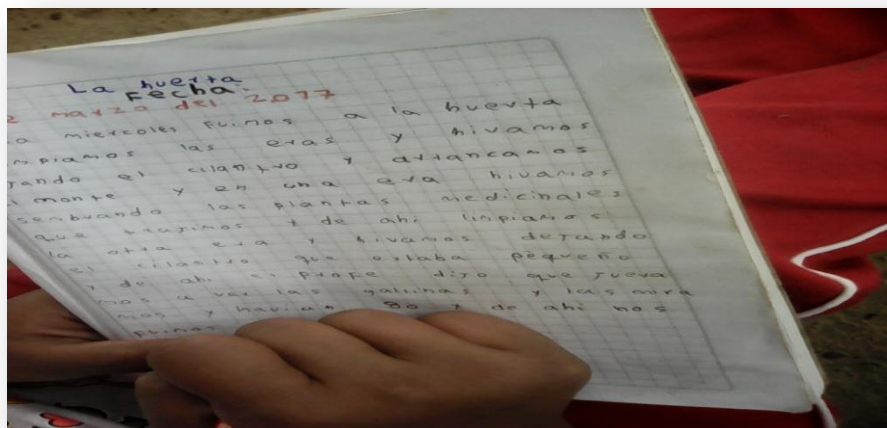 La huerta
Fecha:
marzo del 2017
miercoles fuimos a la huerta
mpiamos las eras y hivamos
jando el cilantro y arrancamos
l monte y en una era hivamos
senbrando las plantas medicinales
que trujimos y de ahi limpiamos
la otra era y hivamos dejando
el cilantro que estaba pequeño
y de ahi el profe dijo que fuera
mos a ver las gallinas y las mira
mos y havian 80 y de ahi nos
fuimos